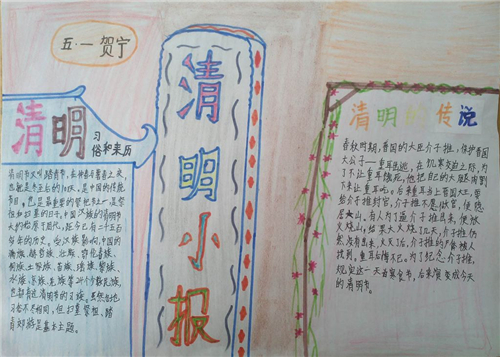 五·一 贺宁
清明习
俗和来历
清明节又叫踏青节,在仲春与暮春之交,
也就是冬至后的108天。是中国的传统
节日,也是最重要的祭祀节日一是祭
祖和扫墓的日子。中国汉族的清明节
大约始于周代,距今已有二千五百
多年的历史。受汉族影响,中国的
满族、赫哲族、壮族、鄂伦春族、
侗族、土家族、苗族、瑶族、黎族、
水族、京族、羌族等24个少数民族,
也都有过清明节的习俗。虽然各地
习俗不尽相同,但扫墓祭祖、踏
青郊游是基本主题。
清明小报
清明的传说
春秋时期,晋国的大臣介子推,保护晋国
大公子——重耳逃跑,在饥寒交迫之际,为
了不让重耳饿死,他把自己的大腿肉割
下来让重耳吃。后来重耳当上晋国大王,要
给介子推封官,介子推不愿做官,便隐
居大山。有人为了逼介子推出来,便放
火烧山,结果大火烧了几天,介子推仍
然没有出来。大火过后,介子推的尸体被人
找到,重耳后悔不已。为了纪念介子推,
规定这一天为寒食节,后来演变成今天
的清明节。